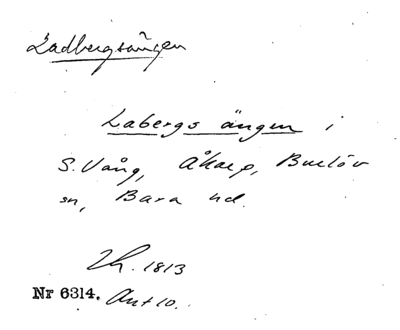 Ladbergsängen
Labergs ängen i
S. Vång, Åkarp, Burlöv
sn, Bara hd.
Lh. 1813
Nr 6314. Akt 10.